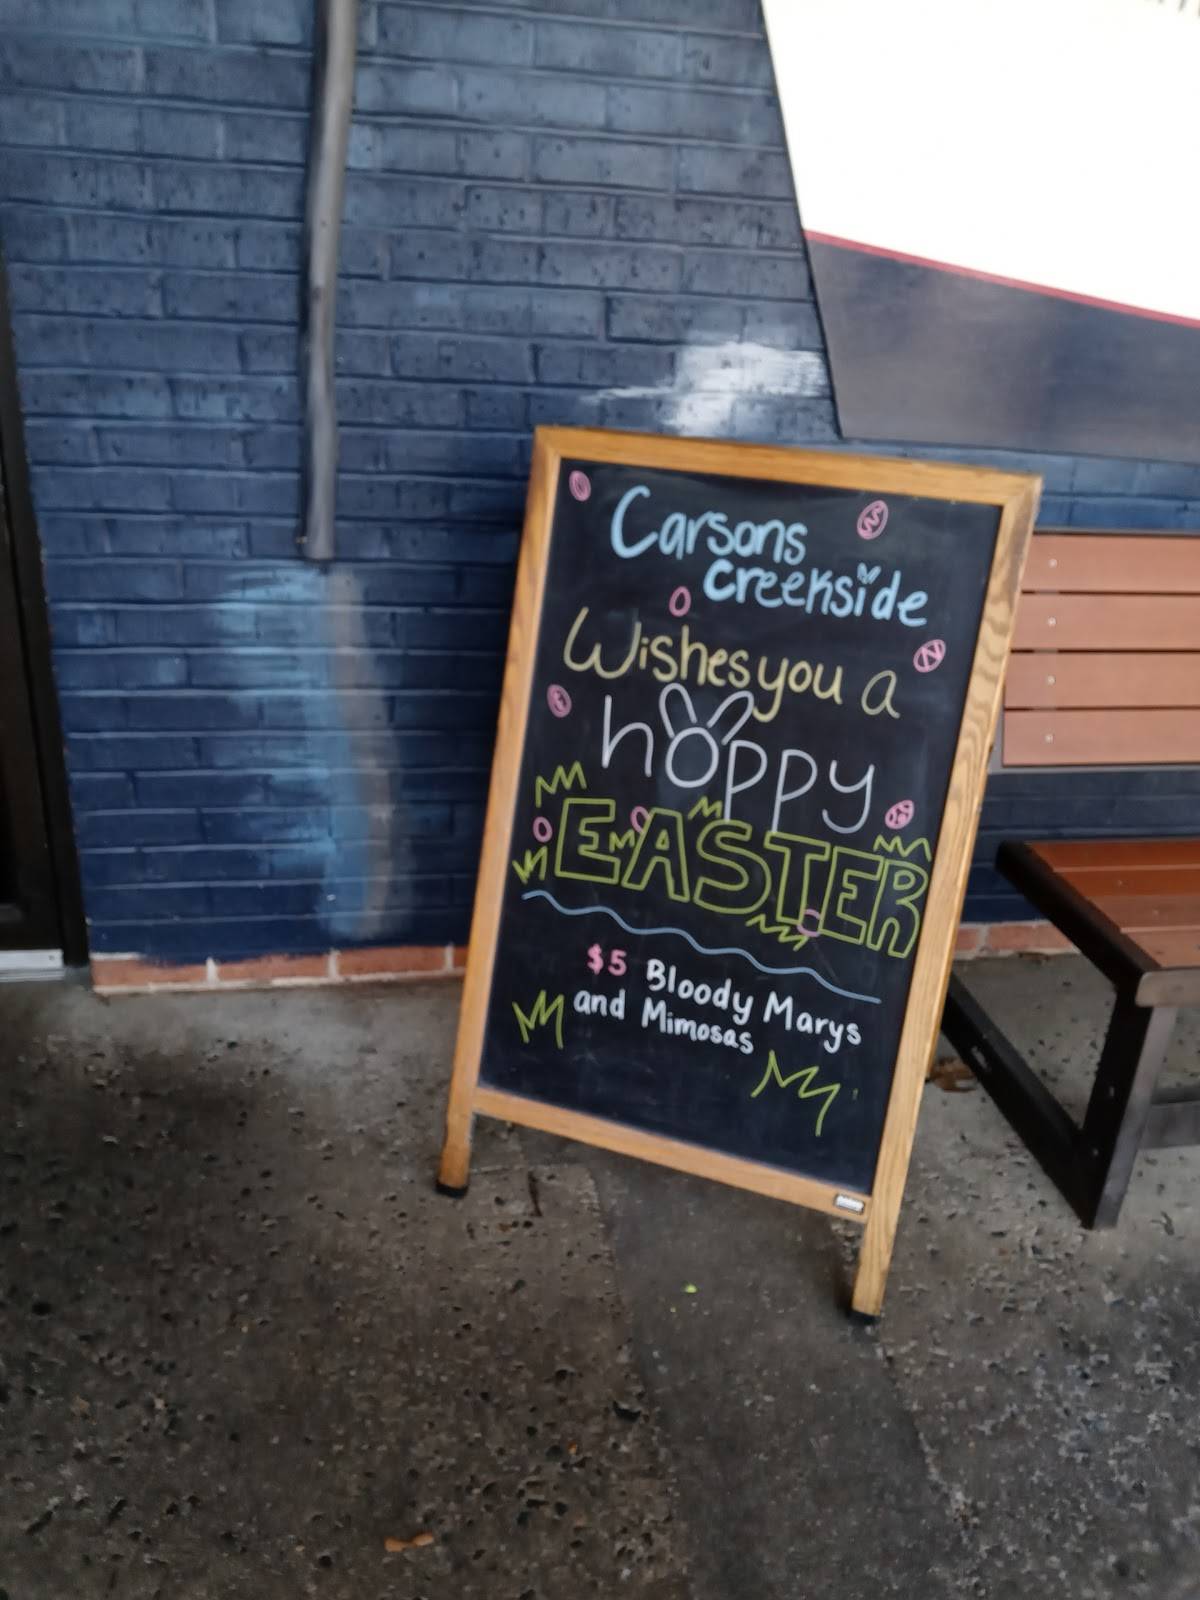 Carsons
creekside
Wishes you a
hoppy
EASTER
$5 Bloody Marys
and Mimosas